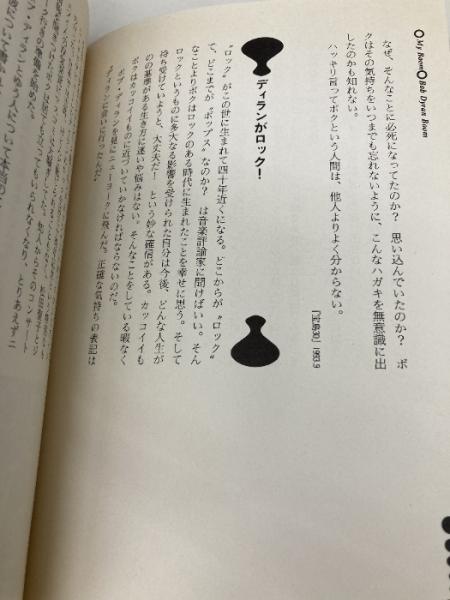 My Boom Bob Dylan Boom
なぜ、そんなことに必死になってたのか? 思い込んでいたのか? ボ
クはその気持ちをいつまでも忘れないように、こんなハガキを無意識に出
したのかも知れない。
ハッキリ言ってボクという人間は、他人よりよく分からない。
『宝島30』1993.9
ディランがロック!
"ロック"がこの世に生まれて四十年近くになる。どこからが"ロック"
で、どこまでが"ポップス"なのか? は音楽評論家に聞けばいい。そん
なことよりボクはロックのある時代に生まれたことを幸せに思う。そして
ロックというものに多大なる影響を受けられた自分は今後、どんな人生が
待ち受けていようと、大丈夫だ! という妙な確信がある。カッコイイも
のの基準がある生き方に迷いや悩みはない。そんなことをしている暇なく
ボクはカッコイイものに近づいていかなければならないのだ。
ボブ・ディランを見にニューヨークに飛んだ。正確な気持ちの表記は
"ディランに会いに行ったんだ"